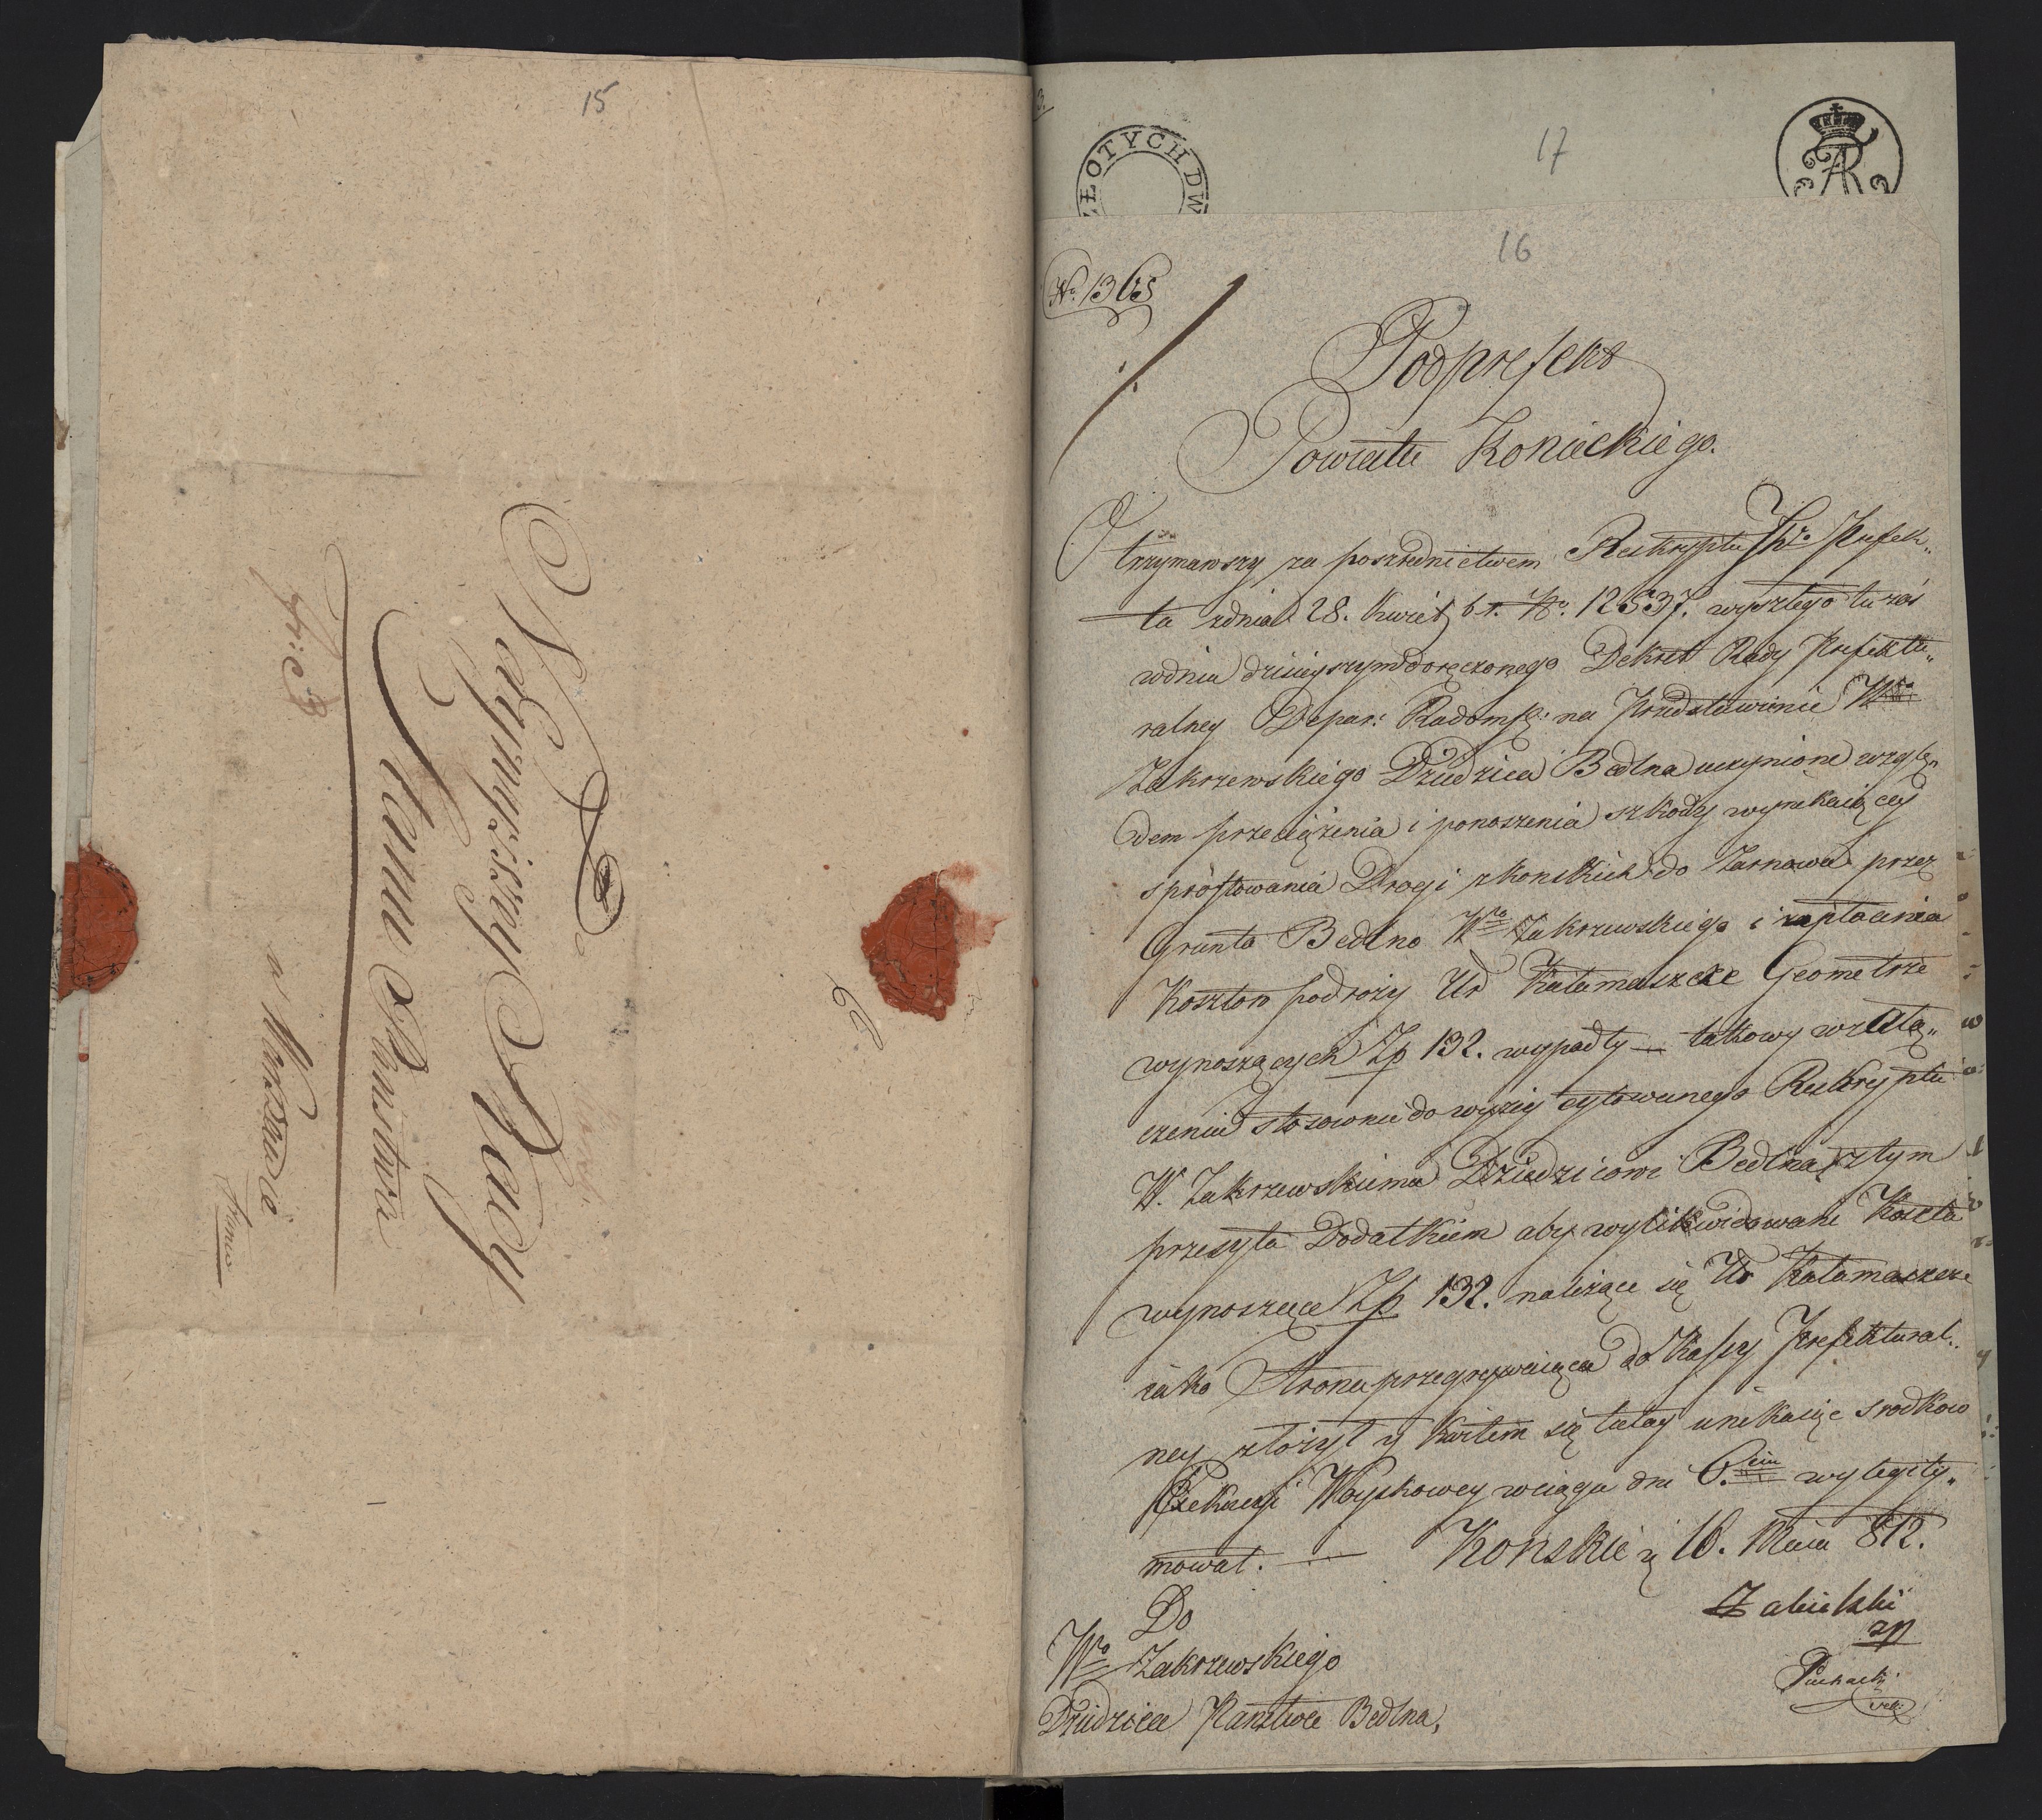 15
Do
Naywyższey Rady
Stanu Xięstwa
w Warszawie
franco
17
ZŁOTYCH DW
16
No. 1365
Podprefekt
Powiatu Konieckiego.
Otrzymawszy za poszrednictwem Reskryptu JWo Prefek„
ta zdnia 28. Kwiet. b. r. No. 12537. wyszłego tu zaś
wdniu dzisieyszym doręczonego Dekret Rady Prefektu„
ralney Depar: Radomsk: na Przedstawienie Wgo
Zakrzewskiego Dziedzica Bedlna uczynione wzglę„
dem przeciążenia i ponoszenia szkody wynikaiącey
sprostowania Drogi z Konskich do Żarnowa przez
Grunta Bedlno Wgo Zakrzewskiego i zapłacenia
Kosztow podroży Ur Kałamaszce Geometrze
wynoszących Zp 132. wypadły — takowy w załą„
czeniu stosownie do wyżey cytowanego Reskryptu
W. Zakrzewskiemu Dziedzicowi Bedlna z tym
przesyła Dodatkiem aby wylikwidowane Koszta
wynoszące Zp 132. należące się Ur Kałamaszce
iako Strona przegrywaiąca do Kassy Prefektural„
ney złożył y Kwitem się tutay unikaiąc srodkow
Exekucyi Woyskowey wciągu dni 6.ciu wylegity„
mował. — Konskie d. 16. Maia 812.
Zabielski
zp
Puchacki
Do
Wgo Zakrzewskiego
Dziedzica Państwa Bedlna,